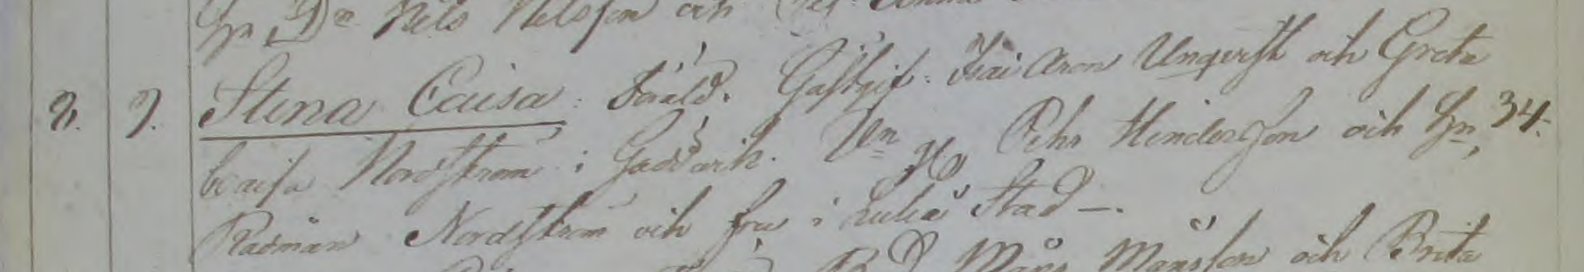 Hr. Dr Nils Nilsson och
8. 9. Stina Caisa. Föräld. Gästgif. Isai Aron Ungqvist och Greta
Caisa Nordström i Gaddvik. Vn Pehr Hindersson och Hr. 34.
Rådman Nordström och fru i Luleå Stad —.
Måns Månsson och Brita